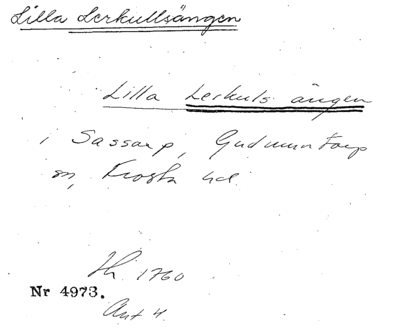 Lilla Lerkullsängen
Lilla Lerkuls ängen
i Sassarp, Gudmuntorp
sn, Frosta hd
Lh 1760
Nr 4973.
Akt 4